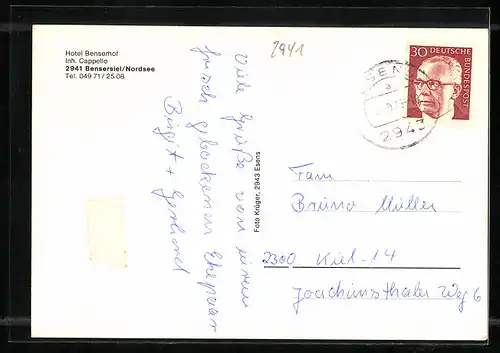 Hotel Benserhof
Inh. Cappello
2941 Bensersiel/Nordsee
Tel. 049 71 / 25 08
2941
Viele Grüße von einem
frisch gebackenen Ehepaar
Birgit + Gerhard
Foto Krüger, 2943 Esens
30 DEUTSCHE
BUNDESPOST
ESENS
a
2943
Fam
Bruno Müller
2300 Kiel-14
Joachimsthaler Weg 6